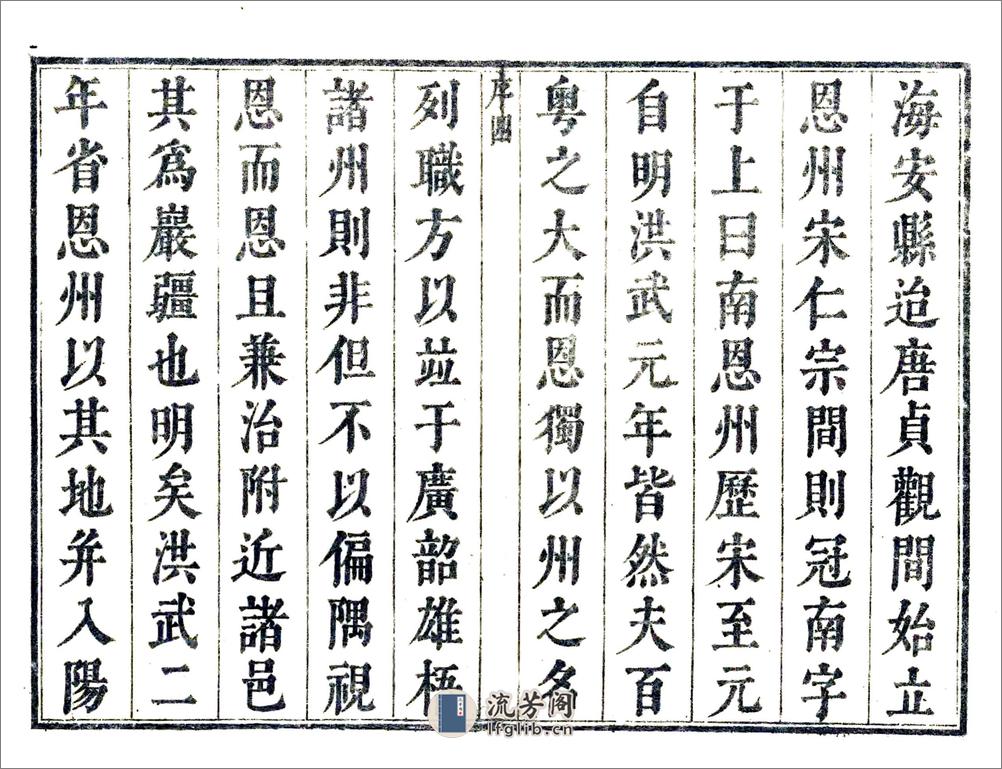 海安縣迨唐貞觀間始立
恩州宋仁宗間則冠南字
于上曰南恩州歷宋至元
自明洪武元年皆然夫百
粵之大而恩獨以州之名
序
列職方以竝于廣韶雄梧
諸州則非但不以偏隅視
恩而恩且兼治附近諸邑
其爲巖疆也明矣洪武二
年省恩州以其地并入陽
流芳阁
lfglib.cn